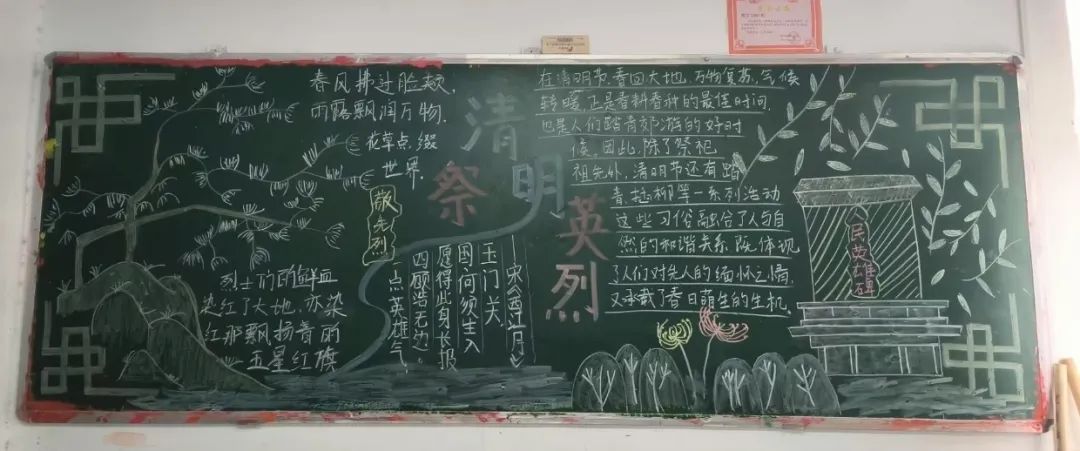 春风拂过脸颊,
雨露飘润万物,
花草点缀
世界.
清明
祭
英烈
敬先烈
烈士们的鲜血
染红了大地,亦染
红那飘扬着丽
五星红旗
一点英雄气
四顾浩无边
愿得此身长报
国何须生入
玉门关。
—宋《西江月》
在清明节,春回大地,万物复苏,气候
转暖,正是春耕春种的最佳时间,
也是人们踏青郊游的好时
候。因此,除了祭祀
祖先外,清明节还有踏
青、插柳等一系列活动
这些习俗融合了人与自
然的和谐关系,既体现
了人们对先人的缅怀之情,
又承载了春日萌生的生机.
人民英雄碑